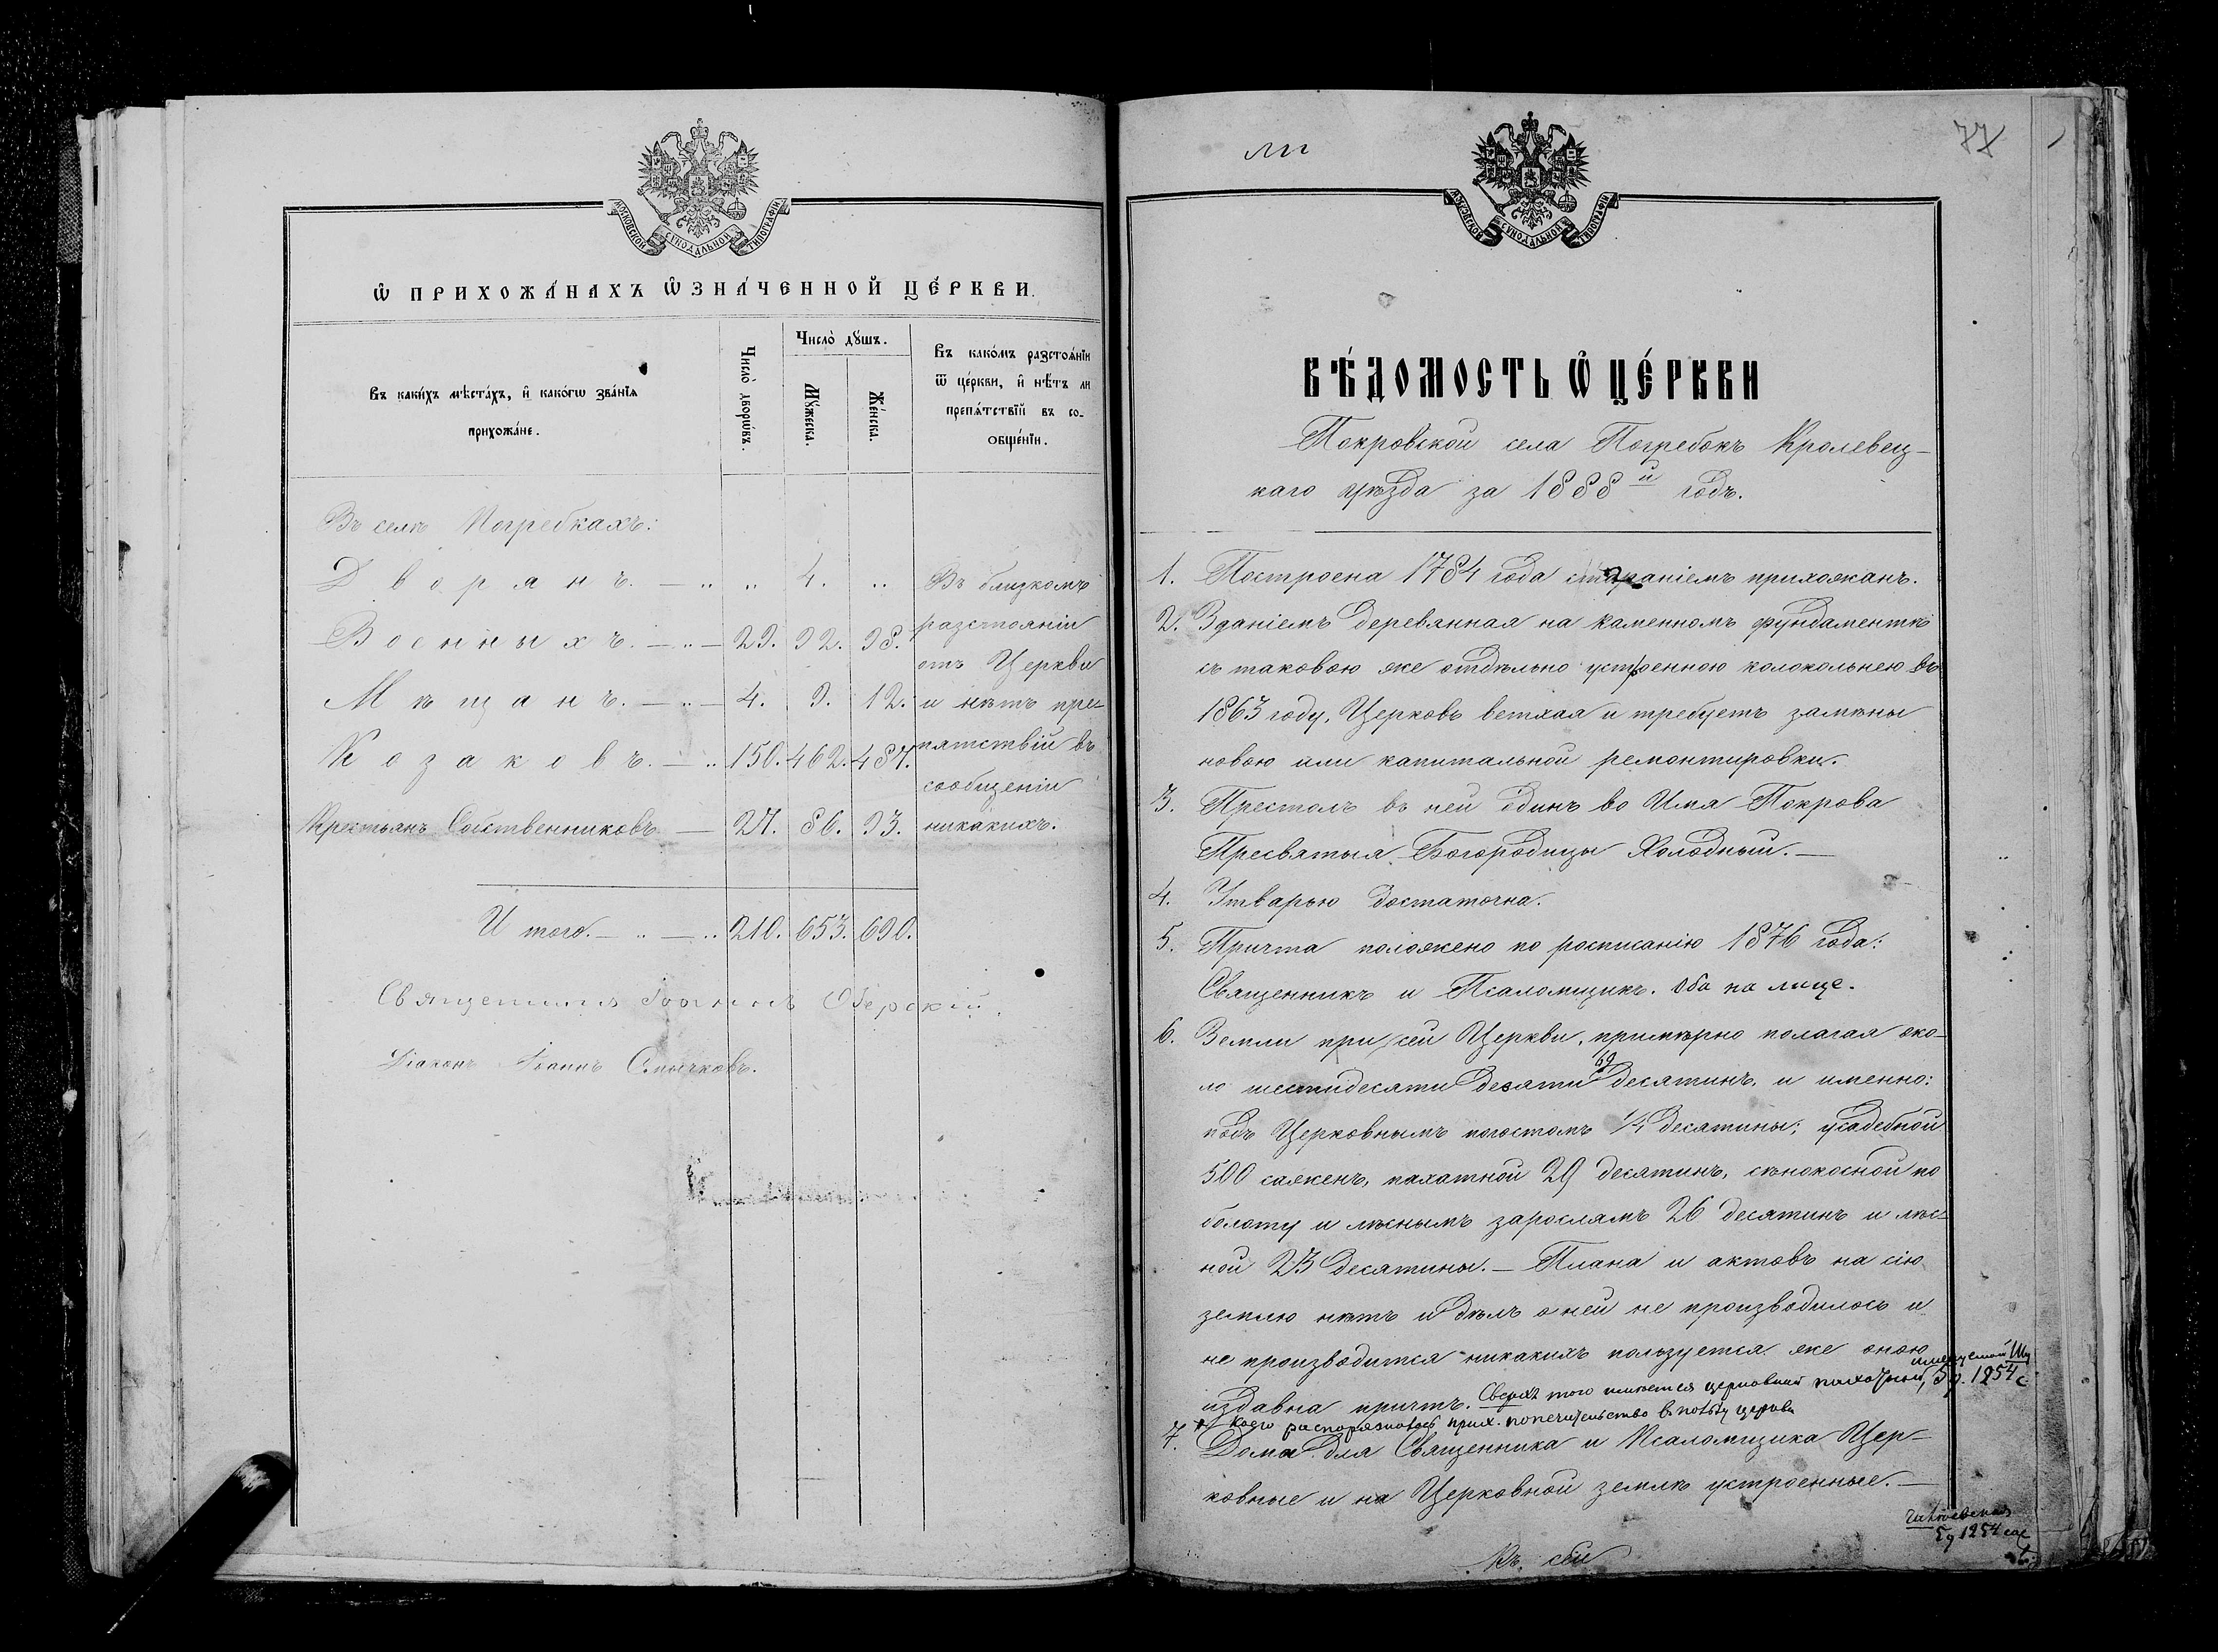 МОСКОВСКОЙ СѴНОДАЛЬНОЙ ТИПОГРАФІИ
Ѿ ПРИХОЖА́НАХЪ Ѡ҆ЗНА́ЧЕННОЙ ЦЕ́РКВИ.
Въ каки́хъ мѣста́хъ, и҆ како́гѡ зва́нїѧ
прихожа́не.
Число̀ дворѡ́въ.
Число̀ дꙋ́шъ.
Мꙋ́жеска.
Же́нска.
Въ како́мъ разстоѧ́нїи
ѿ це́ркви, и҆ нѣ́тъ ли
препѧ́тствїй въ со-
ѻбще́нїи.
Въ селѣ Погребкахъ:
Дворянъ. — „ „ 4. „
Военныхъ. — „ — 29. 92. 98.
Мѣщанъ. — „ — 4. 9. 12.
Козаковъ. — „ 150. 462. 487.
Крестьянъ Собственниковъ — 27. 86. 93.
Въ близкомъ
разстояніи
отъ Церкви
и нѣтъ пре-
пятствій въ
сообщеніи
никакихъ.
И того. — „ — „ 210. 653. 690.
Священникъ Іоаннъ
Діаконъ Іоаннъ
77
МОСКОВСКОЙ СѴНОДАЛЬНОЙ ТИПОГРАФІИ
ВѢ́ДОМОСТЬ Ѿ ЦЕ́РКВИ
Покровской села Погребокъ Кролевец-
каго уѣзда за 1888й годъ.
1. Построена 1784 года стараніемъ прихожанъ.
2. Зданіемъ деревянная на каменномъ фундаментѣ
съ таковою же отдѣльно устроенною колокольнею въ
1863 году. Церковь ветхая и требуетъ замѣны
новою или капитальной ремонтировки.
3. Престолъ въ ней одинъ во Имя Покрова
Пресвятыя Богородицы Холодный. —
4. Утварью достаточна.
5. Причта положено по росписанію 1876 года:
Священникъ и Псаломщикъ. Оба на лице.
6. Земли при сей Церкви, примѣрно полагая око-
ло шестидесяти девяти 69 десятинъ, и именно:
подъ Церковнымъ погостомъ 1/4 десятины; усадебной
500 саженъ, пахатной 29 десятинъ, сѣнокосной по
болоту и лѣснымъ зарослямъ 26 десятинъ и лѣс-
ной 23 десятины. — Плана и актовъ на сію
землю нѣтъ и дѣлъ о ней не производилось и
не производится никакихъ пользуется же оною
издавна причтъ. Сверхъ того имѣется церковной пахатной, 5 д. 1254 с
коею распоряжается прих. попечительство въ пользу церкви
7. Дома для Священника и Псаломщика Цер-
ковные и на Церковной землѣ устроенные. —
5 д 1254 саж
Къ сей